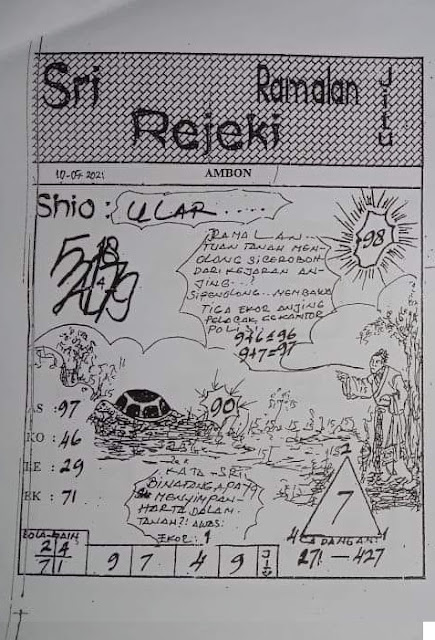 Sri
Ramalan
JITU
Rejeki
AMBON
Shio : ULAR.....
98
RAMALAN...
TUAN TANAH MEN-
OLONG SICEROBOH
DARI KEJARAN AN-
JING...!
SIPENOLONG.. MEMBAWA
TIGA EKOR ANJING
PELACAK, KEKANTOR
POLISI!
9+6=96
9+7=97
AS : 97
KO : 46
: 29
EK : 71
90
KATA-SRI
BINATANG APA YG
MENYIMPAN
HARTA DALAM
TANAH?! AWAS!
EKOR: 1
2
7
4
1
CADANGAN!
271 — 427
BOLA-MAIN
24
71
9 7 4 9
JITU